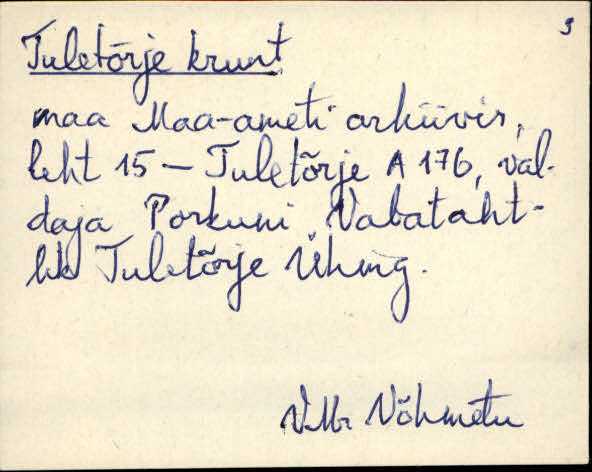 3
Tuletõrje krunt
maa Maa-ameti arhiivis,
leht 15 — Tuletõrje A 176, val-
daja Porkuni Vabataht-
lik Tuletõrje Ühing.
VMr Võhmetu